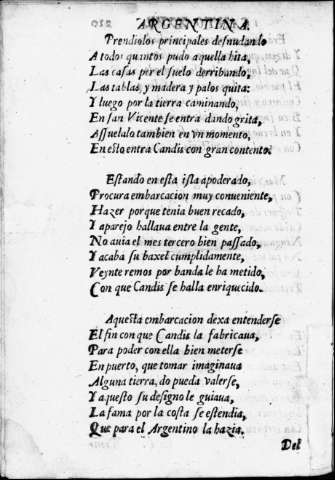 ARGENTINA.
Prendiolos principales desnudando
A todos quantos pudo aquella hita,
Las casas por el suelo derribando,
Las tablas, y madera y palos quita:
Y luego por la tierra caminando,
En san Vicente se entra dando grita,
Assuelalo tambien en vn momento,
En esto entra Candis con gran contento.
Estando en esta isla apoderado,
Procura embarcacion muy conueniente,
Hazer porque tenia buen recado,
Y aparejo hallaua entre la gente,
No auia el mes tercero bien passado,
Y acaba su baxel cumplidamente,
Veynte remos por banda le ha metido,
Con que Candis se halla enriquecido.
Aquesta embarcacion dexa entenderse
El fin con que Candis la fabricaua,
Para poder con ella bien meterse
En puerto, que tomar imaginaua
Alguna tierra, do pueda valerse,
Y aquesto su designo le guiaua,
La fama por la costa se estendia,
Que para el Argentino la hazia.
Del